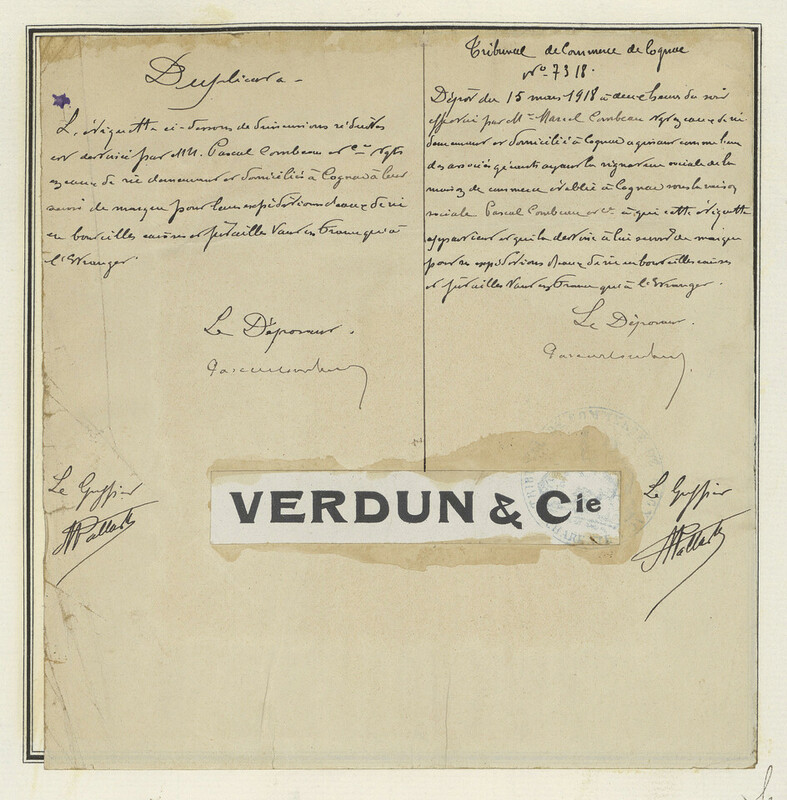 Duplicata
L'étiquette ci-dessous de dimensions réduites
est destinée par MM. Pascal Combeau et Cie Négts
en eaux de vie demeurant et domiciliés à Cognac à leur
servir de marque pour leurs expéditions d'eaux de vie
en bouteilles caisses et futailles tant en France qu'à
l'Etranger.
Le Déposant.
Le Greffier
Tribunal de Commerce de Cognac
No 7318.
Dépôt du 15 mars 1918 à deux heures du soir
effectué par Mr Marcel Combeau Négt en eaux de vie
demeurant et domicilié à Cognac agissant comme l'un
des associés gérants ayant la signature sociale de la
maison de commerce établie à Cognac sous la raison
sociale Pascal Combeau et Cie à qui cette étiquette
appartient et qui la destine à lui servir de marque
pour ses expéditions d'eaux de vie en bouteilles caisses
et futailles tant en France qu'à l'Etranger.
Le Déposant.
Le Greffier
VERDUN & Cie